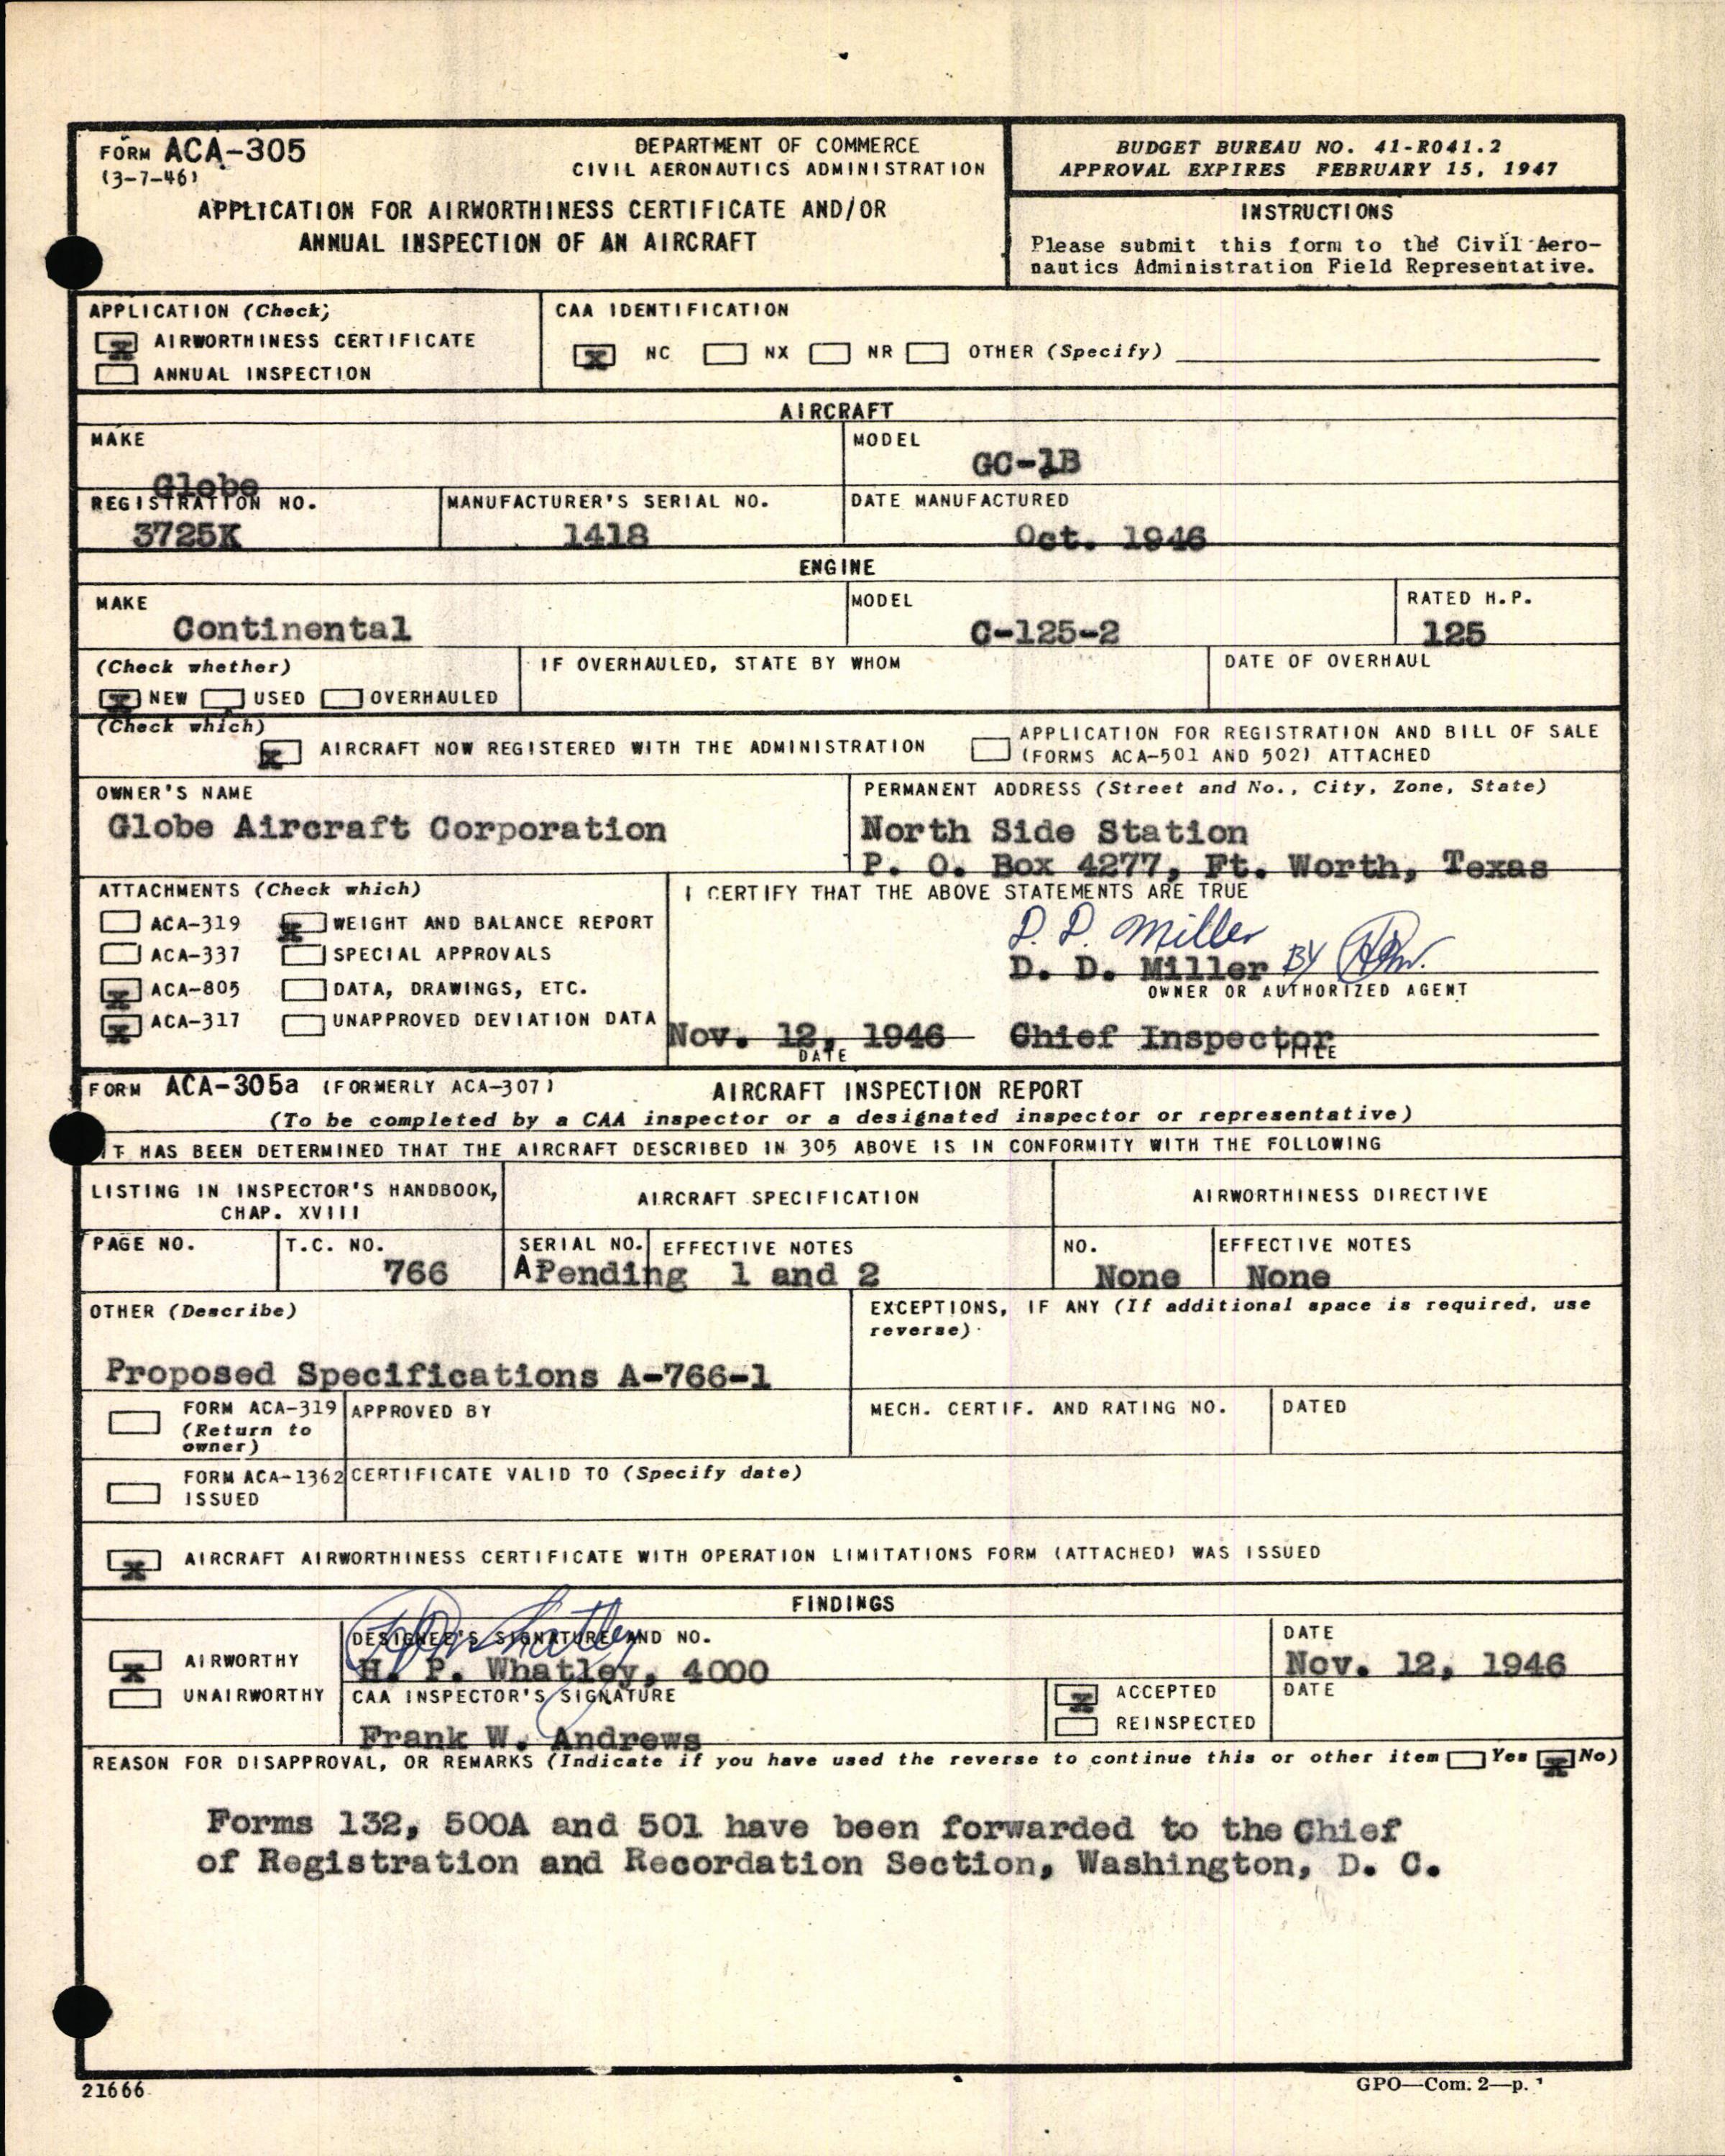 FORM ACA-305
(3-7-46)
DEPARTMENT OF COMMERCE
CIVIL AERONAUTICS ADMINISTRATION
APPLICATION FOR AIRWORTHINESS CERTIFICATE AND/OR
ANNUAL INSPECTION OF AN AIRCRAFT
BUDGET BUREAU NO. 41-R041.2
APPROVAL EXPIRES FEBRUARY 15, 1947
INSTRUCTIONS
Please submit this form to the Civil Aero-
nautics Administration Field Representative.
APPLICATION (Check)
X AIRWORTHINESS CERTIFICATE
ANNUAL INSPECTION
CAA IDENTIFICATION
X NC NX NR OTHER (Specify)
AIRCRAFT
MAKE
Globe
MODEL
GC-1B
REGISTRATION NO.
3725K
MANUFACTURER'S SERIAL NO.
1418
DATE MANUFACTURED
Oct. 1946
ENGINE
MAKE
Continental
MODEL
C-125-2
RATED H.P.
125
(Check whether)
X NEW USED OVERHAULED
IF OVERHAULED, STATE BY WHOM
DATE OF OVERHAUL
(Check which)
X AIRCRAFT NOW REGISTERED WITH THE ADMINISTRATION
APPLICATION FOR REGISTRATION AND BILL OF SALE
(FORMS ACA-501 AND 502) ATTACHED
OWNER'S NAME
Globe Aircraft Corporation
PERMANENT ADDRESS (Street and No., City, Zone, State)
North Side Station
P. O. Box 4277, Ft. Worth, Texas
ATTACHMENTS (Check which)
ACA-319 X WEIGHT AND BALANCE REPORT
ACA-337 SPECIAL APPROVALS
X ACA-805 DATA, DRAWINGS, ETC.
X ACA-317 UNAPPROVED DEVIATION DATA
I CERTIFY THAT THE ABOVE STATEMENTS ARE TRUE
D. D. Miller
D. D. Miller BY
OWNER OR AUTHORIZED AGENT
Nov. 12, 1946 Chief Inspector
DATE TITLE
FORM ACA-305a (FORMERLY ACA-307) AIRCRAFT INSPECTION REPORT
(To be completed by a CAA inspector or a designated inspector or representative)
IT HAS BEEN DETERMINED THAT THE AIRCRAFT DESCRIBED IN 305 ABOVE IS IN CONFORMITY WITH THE FOLLOWING
LISTING IN INSPECTOR'S HANDBOOK,
CHAP. XVIII
AIRCRAFT SPECIFICATION
AIRWORTHINESS DIRECTIVE
PAGE NO.
T.C. NO.
766
SERIAL NO.
APending
EFFECTIVE NOTES
1 and 2
NO.
None
EFFECTIVE NOTES
None
OTHER (Describe)
Proposed Specifications A-766-1
EXCEPTIONS, IF ANY (If additional space is required, use
reverse)
FORM ACA-319
(Return to
owner)
APPROVED BY
MECH. CERTIF. AND RATING NO.
DATED
FORM ACA-1362
ISSUED
CERTIFICATE VALID TO (Specify date)
X AIRCRAFT AIRWORTHINESS CERTIFICATE WITH OPERATION LIMITATIONS FORM (ATTACHED) WAS ISSUED
FINDINGS
X AIRWORTHY
UNAIRWORTHY
DESIGNEE'S SIGNATURE AND NO.
H. P. Whatley, 4000
DATE
Nov. 12, 1946
CAA INSPECTOR'S SIGNATURE
Frank W. Andrews
X ACCEPTED
REINSPECTED
DATE
REASON FOR DISAPPROVAL, OR REMARKS (Indicate if you have used the reverse to continue this or other item Yes X No)
Forms 132, 500A and 501 have been forwarded to the Chief
of Registration and Recordation Section, Washington, D. C.
21666
GPO—Com. 2—p.